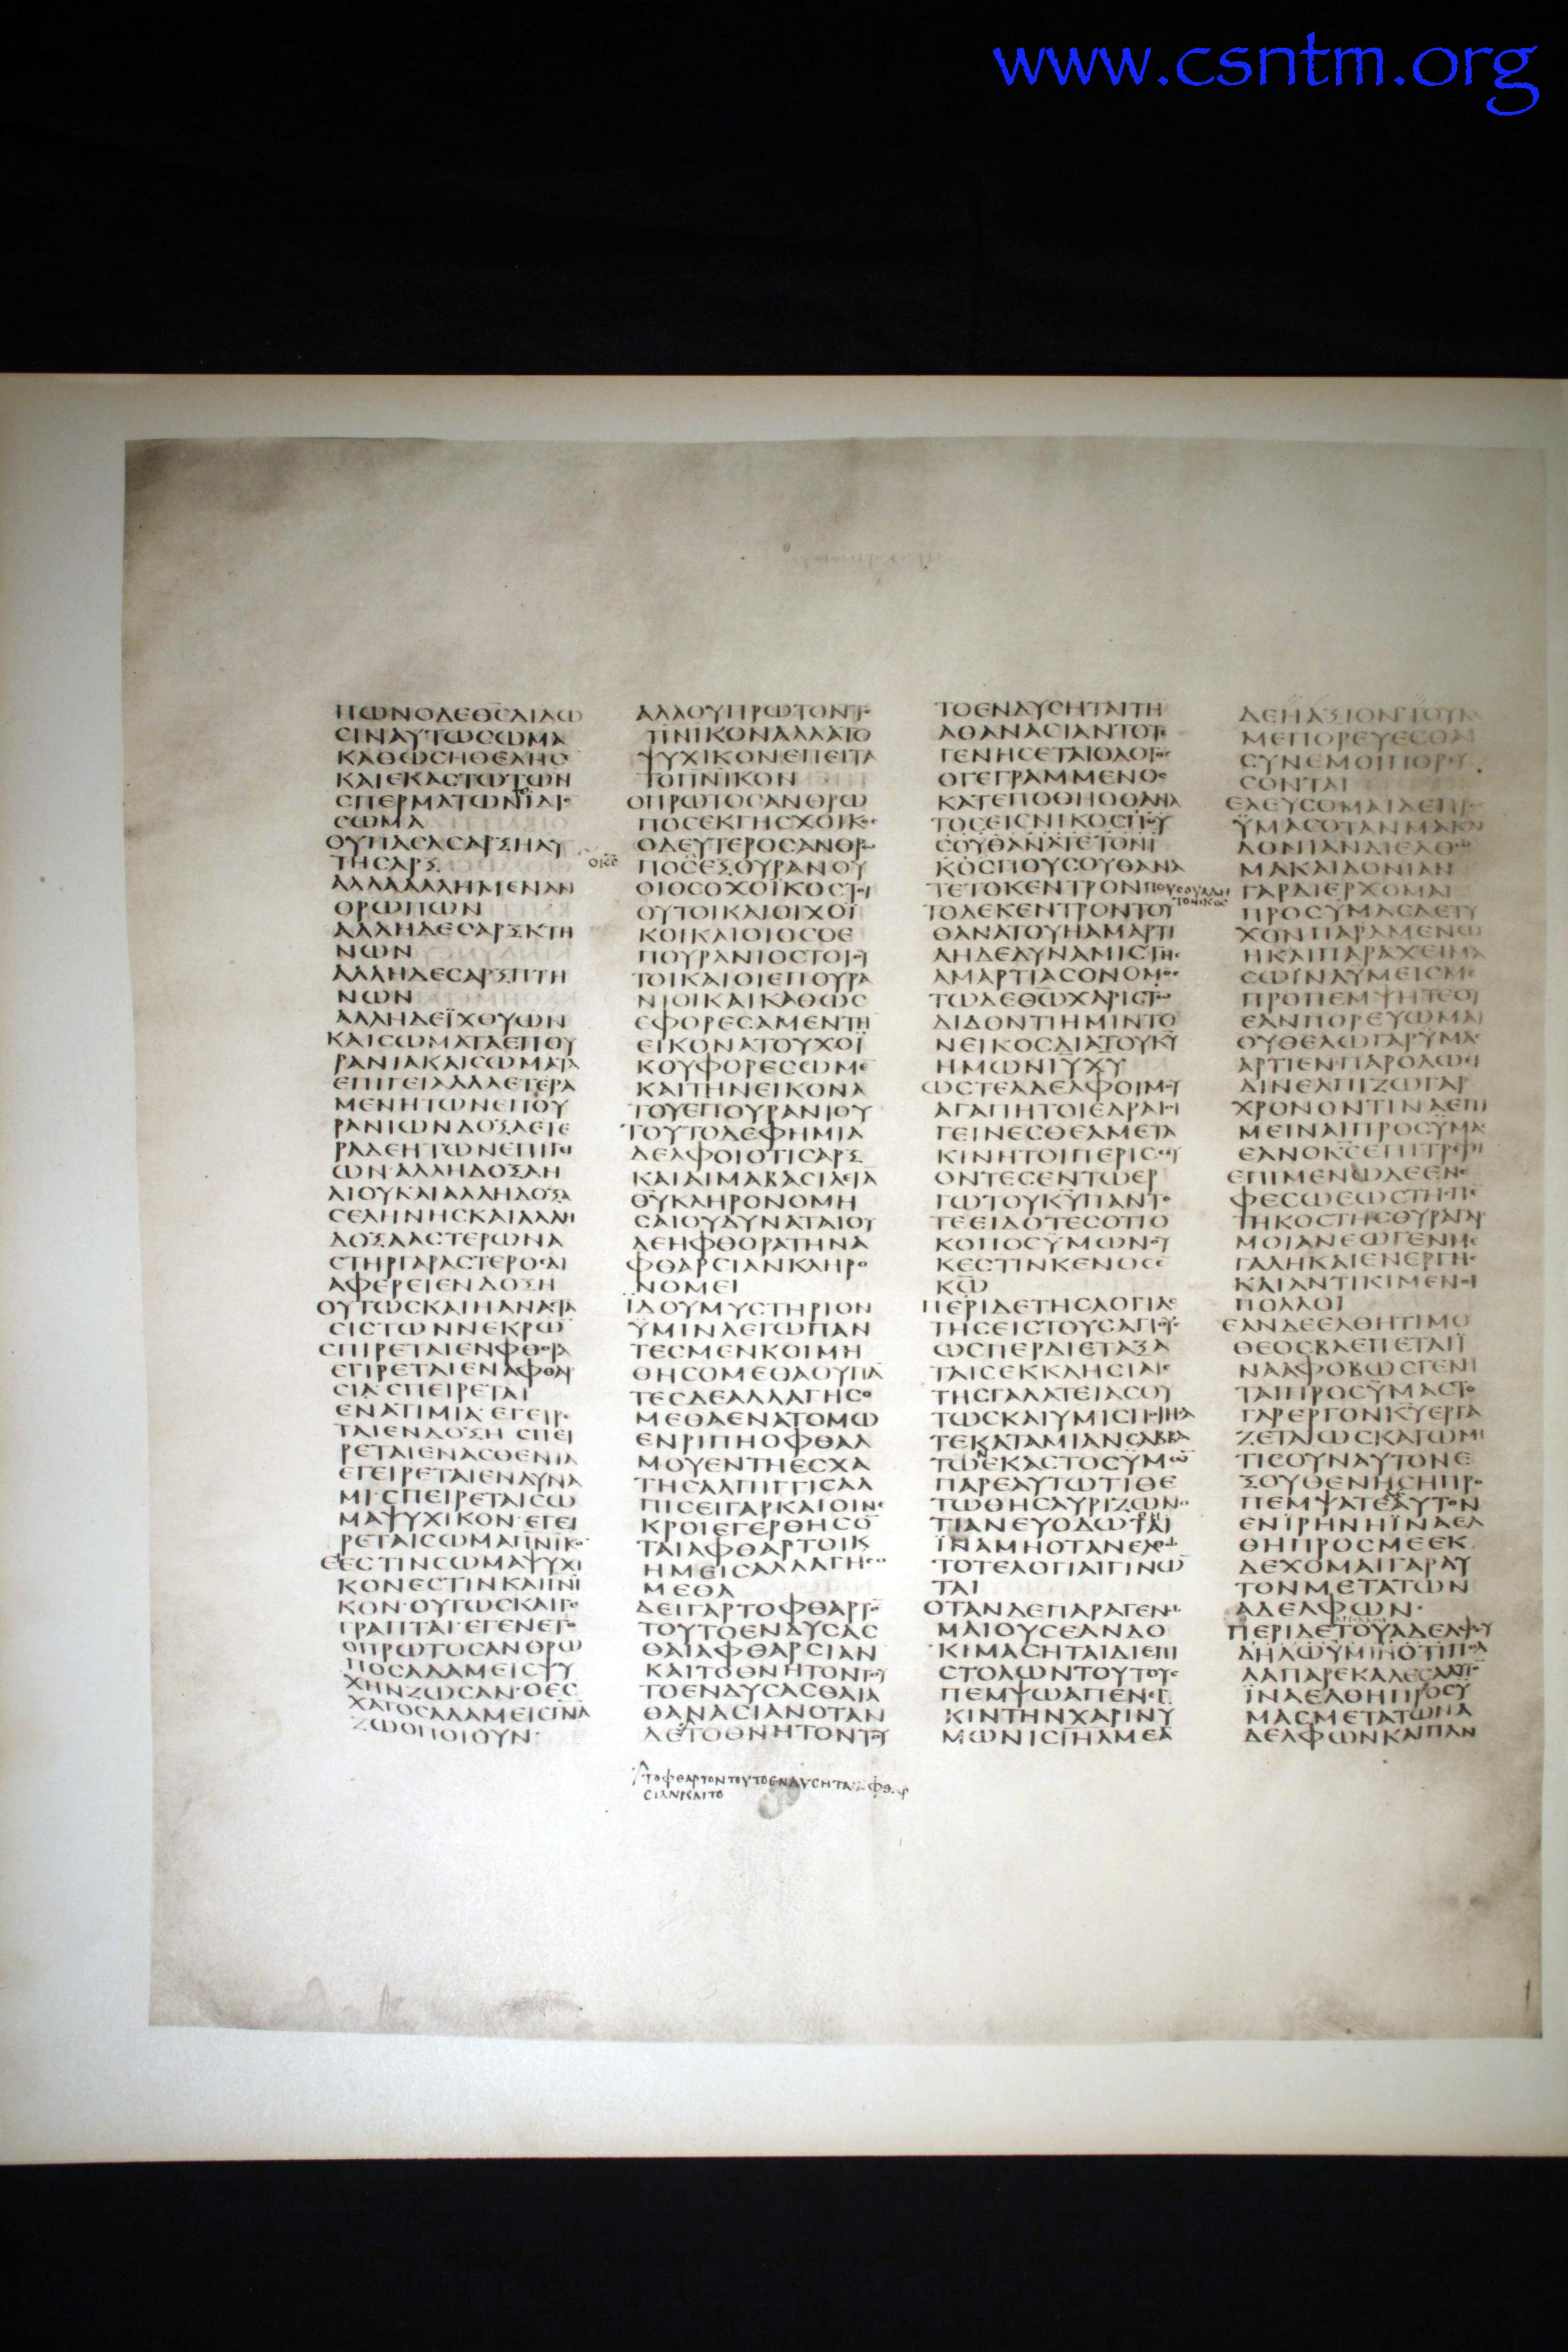 www.csntm.org
ΠΩΝΟΔΕΘϹΔΙΔΩ
ϹΙΝΑΥΤΩϹΩΜΑ
ΚΑΘΩϹΗΘΕΛΗϹ
ΚΑΙΕΚΑϹΤΩΤΩΝ
ϹΠΕΡΜΑΤΩΝΙΔΙΟ
ϹΩΜΑ
ΟΥΠΑϹΑϹΑΡΞΗΑΥ
ΤΗϹΑΡΞ
ΑΛΛΑΑΛΛΗΜΕΝΑΝ
ΘΡΩΠΩΝ
ΑΛΛΗΔΕϹΑΡΞΚΤΗ
ΝΩΝ
ΑΛΛΗΔΕϹΑΡΞΠΤΗ
ΝΩΝ
ΑΛΛΗΔΕΪΧΘΥΩΝ
ΚΑΙϹΩΜΑΤΑΕΠΟΥ
ΡΑΝΙΑΚΑΙϹΩΜΑΤΑ
ΕΠΙΓΕΙΑΑΛΛΑΕΤΕΡΑ
ΜΕΝΗΤΩΝΕΠΟΥ
ΡΑΝΙΩΝΔΟΞΑΕΤΕ
ΡΑΔΕΗΤΩΝΕΠΙΓΙ
ΩΝ·ΑΛΛΗΔΟΞΑΗ
ΛΙΟΥΚΑΙΑΛΛΗΔΟΞΑ
ϹΕΛΗΝΗϹΚΑΙΑΛΛΗ
ΔΟΞΑΑϹΤΕΡΩΝΑ
ϹΤΗΡΓΑΡΑϹΤΕΡΟϹΔΙ
ΑΦΕΡΕΙΕΝΔΟΞΗ
ΟΥΤΩϹΚΑΙΗΑΝΑϹΤΑ
ϹΙϹΤΩΝΝΕΚΡΩ
ϹΠΙΡΕΤΑΙΕΝΦΘΟΡΑ
ΕΓΙΡΕΤΑΙΕΝΑΦΘΑΡ
ϹΙΑϹΠΕΙΡΕΤΑΙ
ΕΝΑΤΙΜΙΑ·ΕΓΕΙΡΕ
ΤΑΙΕΝΔΟΞΗ ϹΠΕΙ
ΡΕΤΑΙΕΝΑϹΘΕΝΙΑ
ΕΓΕΙΡΕΤΑΙΕΝΔΥΝΑ
ΜΙ·ϹΠΕΙΡΕΤΑΙϹΩ
ΜΑΨΥΧΙΚΟΝ·ΕΓΕΙ
ΡΕΤΑΙϹΩΜΑΠΝΙΚΟ
ΕΕϹΤΙΝϹΩΜΑΨΥΧΙ
ΚΟΝΕϹΤΙΝΚΑΙΠΝΙ
ΚΟΝ·ΟΥΤΩϹΚΑΙΓΕ
ΓΡΑΠΤΑΙ·ΕΓΕΝΕΤΟ
ΟΠΡΩΤΟϹΑΝΘΡΩ
ΠΟϹΑΔΑΜΕΙϹΨΥ
ΧΗΝΖΩϹΑΝ·ΟΕϹ
ΧΑΤΟϹΑΔΑΜΕΙϹΠΝΑ
ΖΩΟΠΟΙΟΥΝ·
ΑΛΛΟΥΠΡΩΤΟΝΤΟ
ΠΝΙΚΟΝΑΛΛΑΤΟ
ΨΥΧΙΚΟΝΕΠΕΙΤΑ
ΤΟΠΝΙΚΟΝ
ΟΠΡΩΤΟϹΑΝΘΡΩ
ΠΟϹΕΚΓΗϹΧΟΙΚΟϹ
ΟΔΕΥΤΕΡΟϹΑΝΘΡΩ
ΟΚϹ
ΠΟϹΕΞΟΥΡΑΝΟΥ
ΟΙΟϹΟΧΟΪΚΟϹΤΟΙ
ΟΥΤΟΙΚΑΙΟΙΧΟΪ
ΚΟΙΚΑΙΟΙΟϹΟΕ
ΠΟΥΡΑΝΙΟϹΤΟΙΟΥ
ΤΟΙΚΑΙΟΙΕΠΟΥΡΑ
ΝΙΟΙΚΑΙΚΑΘΩϹ
ΕΦΟΡΕϹΑΜΕΝΤΗ
ΕΙΚΟΝΑΤΟΥΧΟΪ
ΚΟΥΦΟΡΕϹΩΜΕ
ΚΑΙΤΗΝΕΙΚΟΝΑ
ΤΟΥΕΠΟΥΡΑΝΙΟΥ
ΤΟΥΤΟΔΕΦΗΜΙΑ
ΔΕΛΦΟΙΟΤΙϹΑΡΞ
ΚΑΙΑΙΜΑΒΑϹΙΛΕΙΑ
ΘΥΚΛΗΡΟΝΟΜΗ
ϹΑΙΟΥΔΥΝΑΤΑΙΟΥ
ΔΕΗΦΘΟΡΑΤΗΝΑ
ΦΘΑΡϹΙΑΝΚΛΗΡΟ
ΝΟΜΕΙ
ΪΔΟΥΜΥϹΤΗΡΙΟΝ
ΥΜΙΝΛΕΓΩΠΑΝ
ΤΕϹΜΕΝΚΟΙΜΗ
ΘΗϹΟΜΕΘΑΟΥΠΑ
ΤΕϹΔΕΑΛΛΑΓΗϹΟ
ΜΕΘΑΕΝΑΤΟΜΩ
ΕΝΡΙΠΗΟΦΘΑΛ
ΜΟΥΕΝΤΗΕϹΧΑ
ΤΗϹΑΛΠΙΓΓΙϹΑΛ
ΠΙϹΕΙΓΑΡΚΑΙΟΙΝΕ
ΚΡΟΙΕΓΕΡΘΗϹΟ
ΤΑΙΑΦΘΑΡΤΟΙΚ
ΗΜΕΙϹΑΛΛΑΓΗϹΟ
ΜΕΘΑ
ΔΕΙΓΑΡΤΟΦΘΑΡΤΟ
ΤΟΥΤΟΕΝΔΥϹΑϹ
ΘΑΙΑΦΘΑΡϹΙΑΝ
ΚΑΙΤΟΘΝΗΤΟΝΤΟΥ
ΤΟΕΝΔΥϹΑϹΘΑΙΑ
ΘΑΝΑϹΙΑΝΟΤΑΝ
ΔΕΤΟΘΝΗΤΟΝΤΟΥ
ΤΟΦΘΑΡΤΟΝΤΟΥΤΟΕΝΔΥϹΗΤΑΙΑΦΘΑΡ
ϹΙΑΝΚΑΙΤΟ
ΤΟΕΝΔΥϹΗΤΑΙΤΗ
ΑΘΑΝΑϹΙΑΝΤΟΤΕ
ΓΕΝΗϹΕΤΑΙΟΛΟΓΟϹ
ΟΓΕΓΡΑΜΜΕΝΟϹ
ΚΑΤΕΠΟΘΗΟΘΑΝΑ
ΤΟϹΕΙϹΝΙΚΟϹΠΟΥ
ϹΟΥΘΑΝΑΤΕΤΟΝΙ
ΚΟϹΠΟΥϹΟΥΘΑΝΑ
ΤΕΤΟΚΕΝΤΡΟΝ
ΤΟΔΕΚΕΝΤΡΟΝΤΟΥ
ΘΑΝΑΤΟΥΗΑΜΑΡΤΙ
ΑΗΔΕΔΥΝΑΜΙϹΤΗϹ
ΑΜΑΡΤΙΑϹΟΝΟΜΟϹ
ΤΩΔΕΘΩΧΑΡΙϹΤΩ
ΔΙΔΟΝΤΙΗΜΙΝΤΟ
ΝΕΙΚΟϹΔΙΑΤΟΥΚΥ
ΗΜΩΝΙΥΧΥ
ΩϹΤΕΑΔΕΛΦΟΙΜΟΥ
ΑΓΑΠΗΤΟΙΕΔΡΑΙΟΙ
ΓΕΙΝΕϹΘΕΑΜΕΤΑ
ΚΙΝΗΤΟΙΠΕΡΙϹϹΕΥ
ΟΝΤΕϹΕΝΤΩΕΡ
ΓΩΤΟΥΚΥΠΑΝΤΟ
ΤΕΕΙΔΟΤΕϹΟΤΙΟ
ΚΟΠΟϹΫΜΩΝΟΥ
ΚΕϹΤΙΝΚΕΝΟϹΕ
ΚΩ
ΠΕΡΙΔΕΤΗϹΛΟΓΙΑϹ
ΤΗϹΕΙϹΤΟΥϹΑΓΙΟΥϹ
ΩϹΠΕΡΔΙΕΤΑΞΑ
ΤΑΙϹΕΚΚΛΗϹΙΑΙϹ
ΤΗϹΓΑΛΑΤΕΙΑϹΟΥ
ΤΩϹΚΑΙΥΜΙϹΠΟΙΗϹΑ
ΤΕΚΑΤΑΜΙΑΝϹΑΒΒΑ
ΤΩΕΚΑϹΤΟϹΫΜΩ
ΠΑΡΕΑΥΤΩΤΙΘΕ
ΤΩΘΗϹΑΥΡΙΖΩΝΟ
ΤΙΑΝΕΥΟΔΩΤΑΙ
ΪΝΑΜΗΟΤΑΝΕΛΘΩ
ΤΟΤΕΛΟΓΙΑΙΓΙΝΩ
ΤΑΙ
ΟΤΑΝΔΕΠΑΡΑΓΕΝΩ
ΜΑΙΟΥϹΕΑΝΔΟ
ΚΙΜΑϹΗΤΑΙΔΙΕΠΙ
ϹΤΟΛΩΝΤΟΥΤΟΥϹ
ΠΕΜΨΩΑΠΕΝΕΓ
ΚΙΝΤΗΝΧΑΡΙΝΥ
ΜΩΝΙϹΙΗΛΜΕΑ
ΔΕΗΑΞΙΟΝΤΟΥΚ
ΜΕΠΟΡΕΥΕϹΘΑΙ
ϹΥΝΕΜΟΙΠΟΡΕΥ
ϹΟΝΤΑΙ
ΕΛΕΥϹΟΜΑΙΔΕΠΡΟϹ
ΫΜΑϹΟΤΑΝΜΑΚΑΙ
ΔΟΝΙΑΝΔΙΕΛΘΩ
ΜΑΚΑΙΔΟΝΙΑΝ
ΓΑΡΔΙΕΡΧΟΜΑΙ
ΠΡΟϹΫΜΑϹΔΕΤΥ
ΧΟΝΠΑΡΑΜΕΝΩ
ΗΚΑΙΠΑΡΑΧΕΙΜΑ
ϹΩΪΝΑΥΜΕΙϹΜΕ
ΠΡΟΠΕΜΨΗΤΕΟΥ
ΕΑΝΠΟΡΕΥΩΜΑΙ
ΟΥΘΕΛΩΓΑΡΫΜΑϹ
ΑΡΤΙΕΝΠΑΡΟΔΩΪ
ΔΙΝΕΛΠΙΖΩΓΑΡ
ΧΡΟΝΟΝΤΙΝΑΕΠΙ
ΜΕΙΝΑΙΠΡΟϹΫΜΑϹ
ΕΑΝΟΚϹΕΠΙΤΡΕΨΗ
ΕΠΙΜΕΝΩΔΕΕΝΕ
ΦΕϹΩΕΩϹΤΗϹΠΕ
ΤΗΚΟϹΤΗϹΘΥΡΑΓΑΡ
ΜΟΙΑΝΕΩΓΕΝΜΕ
ΓΑΛΗΚΑΙΕΝΕΡΓΗϹ
ΚΑΙΑΝΤΙΚΙΜΕΝΟΙ
ΠΟΛΛΟΙ
ΕΑΝΔΕΕΛΘΗΤΙΜΟ
ΘΕΟϹΒΛΕΠΕΤΑΙΪ
ΝΑΑΦΟΒΩϹΓΕΝΗ
ΤΑΙΠΡΟϹΫΜΑϹΤΟ
ΓΑΡΕΡΓΟΝΚΥΕΡΓΑ
ΖΕΤΑΙΩϹΚΑΓΩΜΗ
ΤΙϹΟΥΝΑΥΤΟΝΕ
ΞΟΥΘΕΝΗϹΗΠΡΟ
ΠΕΜΨΑΤΕΑΥΤΟΝ
ΕΝΪΡΗΝΗΪΝΑΕΛ
ΘΗΠΡΟϹΜΕΕΚ
ΔΕΧΟΜΑΙΓΑΡΑΥ
ΤΟΝΜΕΤΑΤΩΝ
ΑΔΕΛΦΩΝ·
ΠΕΡΙΔΕΤΟΥΑΔΕΛΦΟΥ
ΔΗΛΩΫΜΙΝΟΤΙΠΟΛ
ΛΑΠΑΡΕΚΑΛΕϹΑΑΥΤΟ
ΪΝΑΕΛΘΗΠΡΟϹΥ
ΜΑϹΜΕΤΑΤΩΝΑ
ΔΕΛΦΩΝΚΑΙΠΑΝ